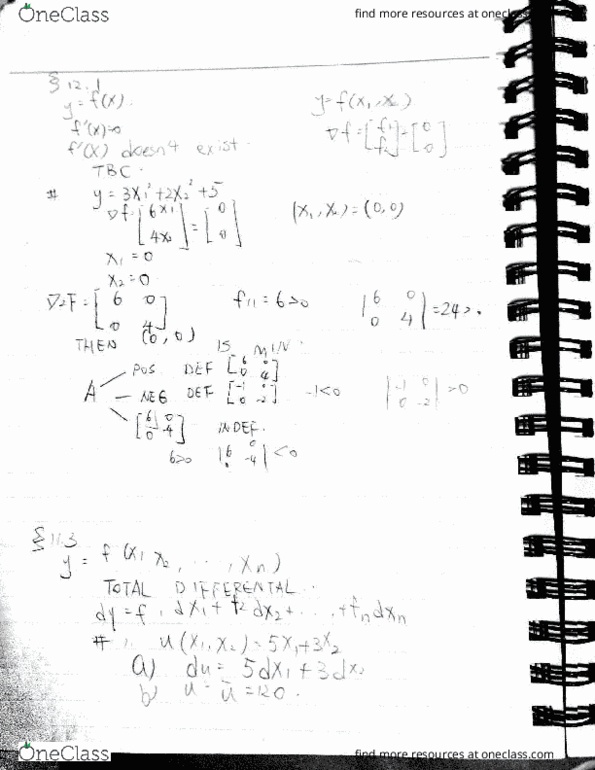 OneClass
find more resources at oneclass.com
§ 12.1
y = f(x).
y = f(x₁, x₂)
f'(x)=0
∇f = [f₁ f₂] = [0 0]
f'(x) doesn't exist.
TBC.
# y = 3x₁² + 2x₂² + 5
∇f = [6x₁ 4x₂] = [0 0]
(x₁, x₂) = (0,0)
x₁ = 0
x₂ = 0
∇²F = [6 0 0 4]
f₁₁ = 6 >0
|6 0 0 4| = 24 >.
THEN (0,0) IS MIN.
A
POS DEF [6 0 0 4]
NEG DEF [-1 0 0 -2] -1<0 |-1 0 0 -2| >0
[6 0 0 -4] INDEF.
6>0 |6 0 -4| <0
§ 11.3
y = f(x₁ x₂, ..., xn)
TOTAL DIFFERENTAL.
dy = f₁dx₁ + f₂dx₂ + ... + fndxn
# 1. u(x₁, x₂) = 5x₁+3x₂
a) du = 5dx₁ + 3dx₂
b) u = ū = 120.
OneClass
find more resources at oneclass.com